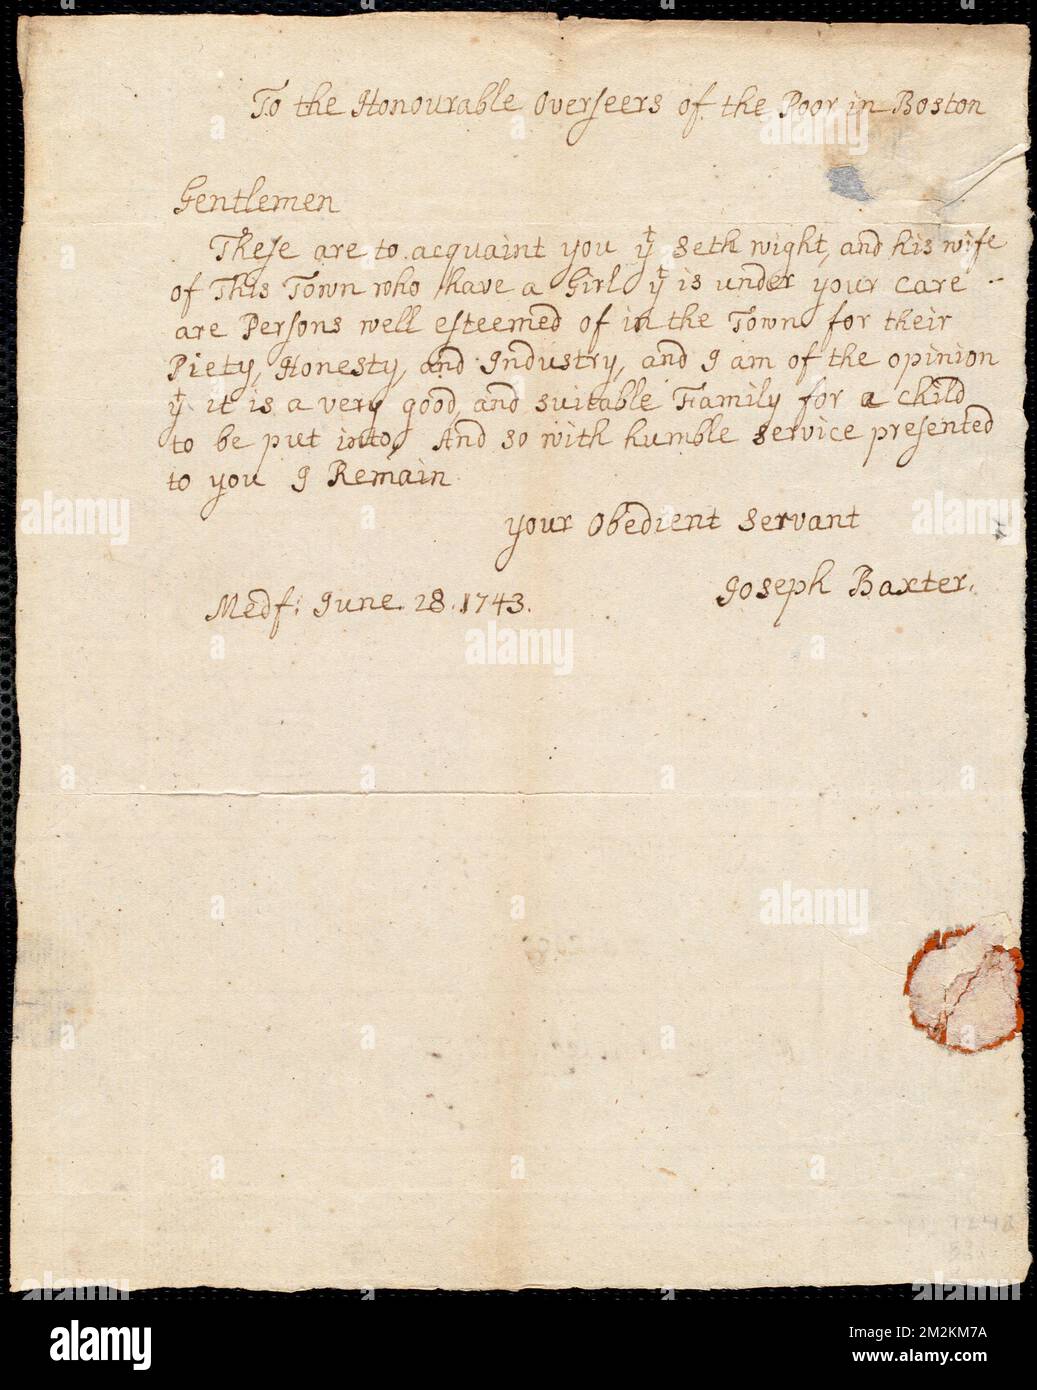 To the Honourable Overseers of the Poor in Boston
Gentlemen
These are to acquaint you yt Seth wight, and his wife
of This Town who have a Girl yt is under your care
are Persons well esteemed of in the Town for their
Piety, Honesty, and Industry, and I am of the opinion
yt it is a very good and suitable Family for a child
to be put into, And so with humble service presented
to you I Remain
your Obedient Servant
Joseph Baxter.
Medf: June 28. 1743.
alamy
Image ID: 2M2KM7A
www.alamy.com